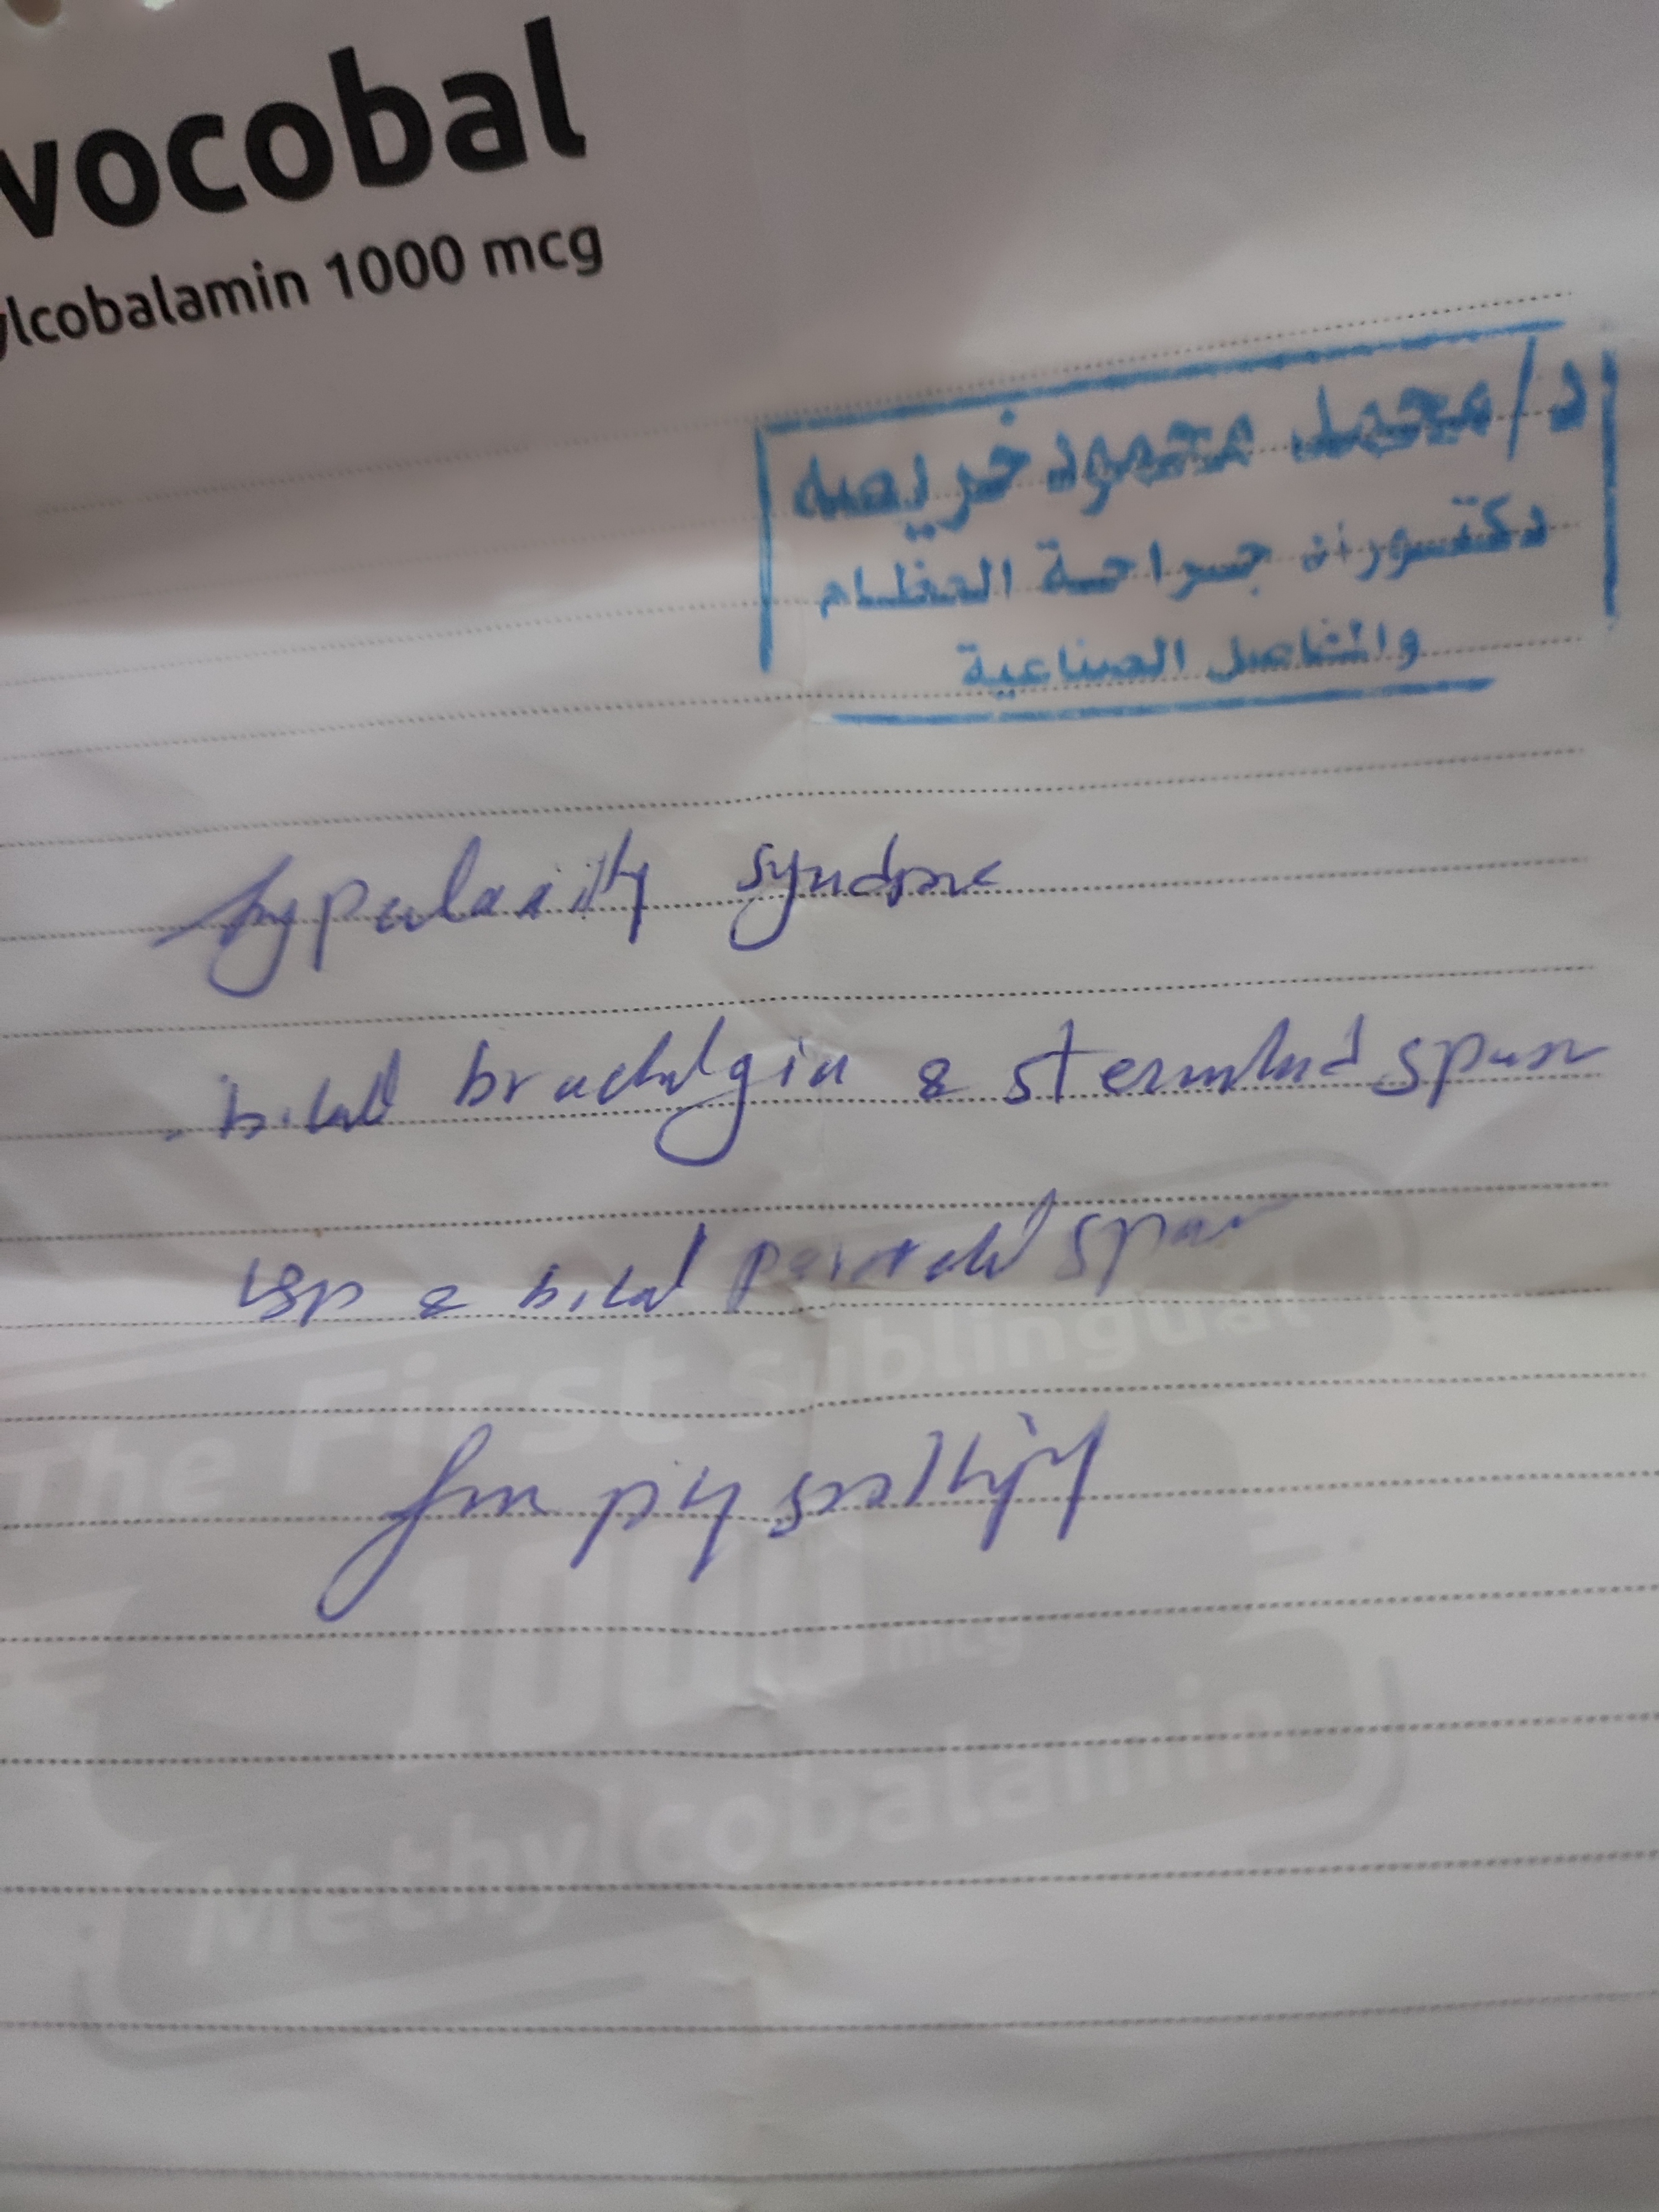 vocobal
ylcobalamin 1000 mcg
د/محمد محمود خريصه
دكتوراه جراحة العظام
والمفاصل الصناعية
hyperlaxity syndrome
bilat brachalgia & sternomastoid spasm
LBP & bilat spasm
for physiotherapy
The First Sublingual
1000
mcg
Methylcobalamin